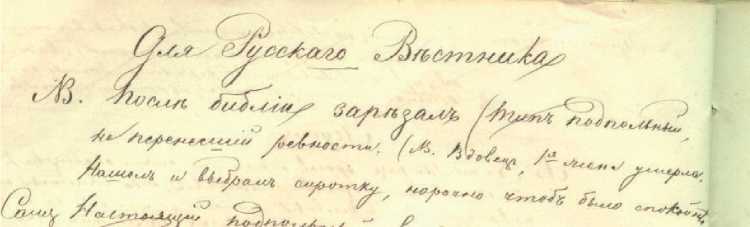 Для Русскаго Вѣстника
NB. Послѣ библіи зарѣзалъ (Типъ подпольный,
не перенесшій ревности. (NB. Вдовец, 1ая жена умерла.
Нашолъ и выбралъ сиротку, нарочно чтобъ было спокойнѣ
Самъ Настоящій подпольный